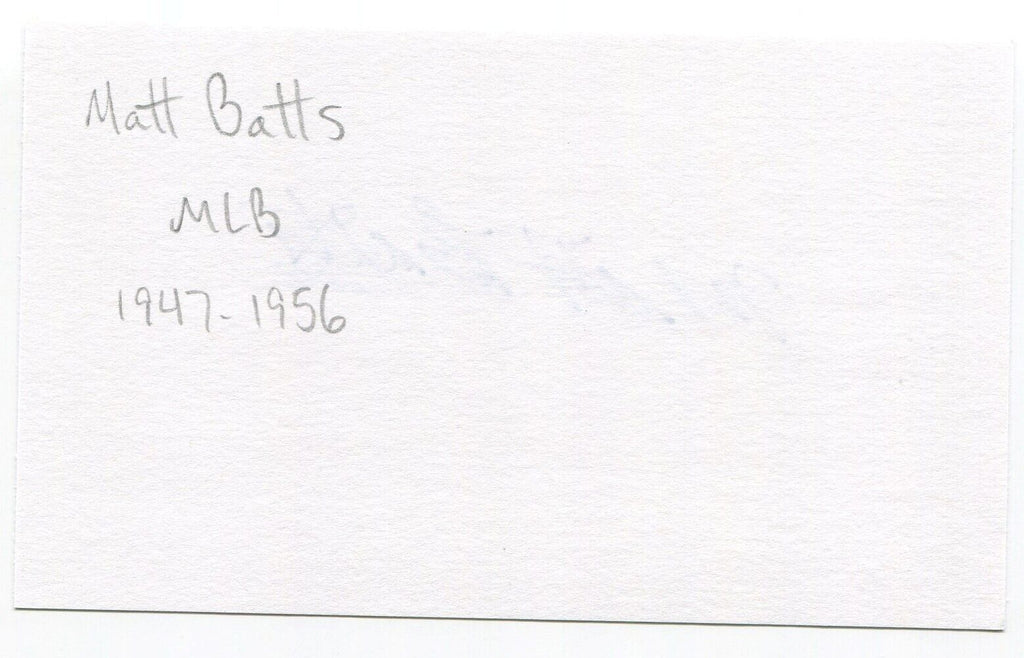 Matt Batts
MLB
1947-1956